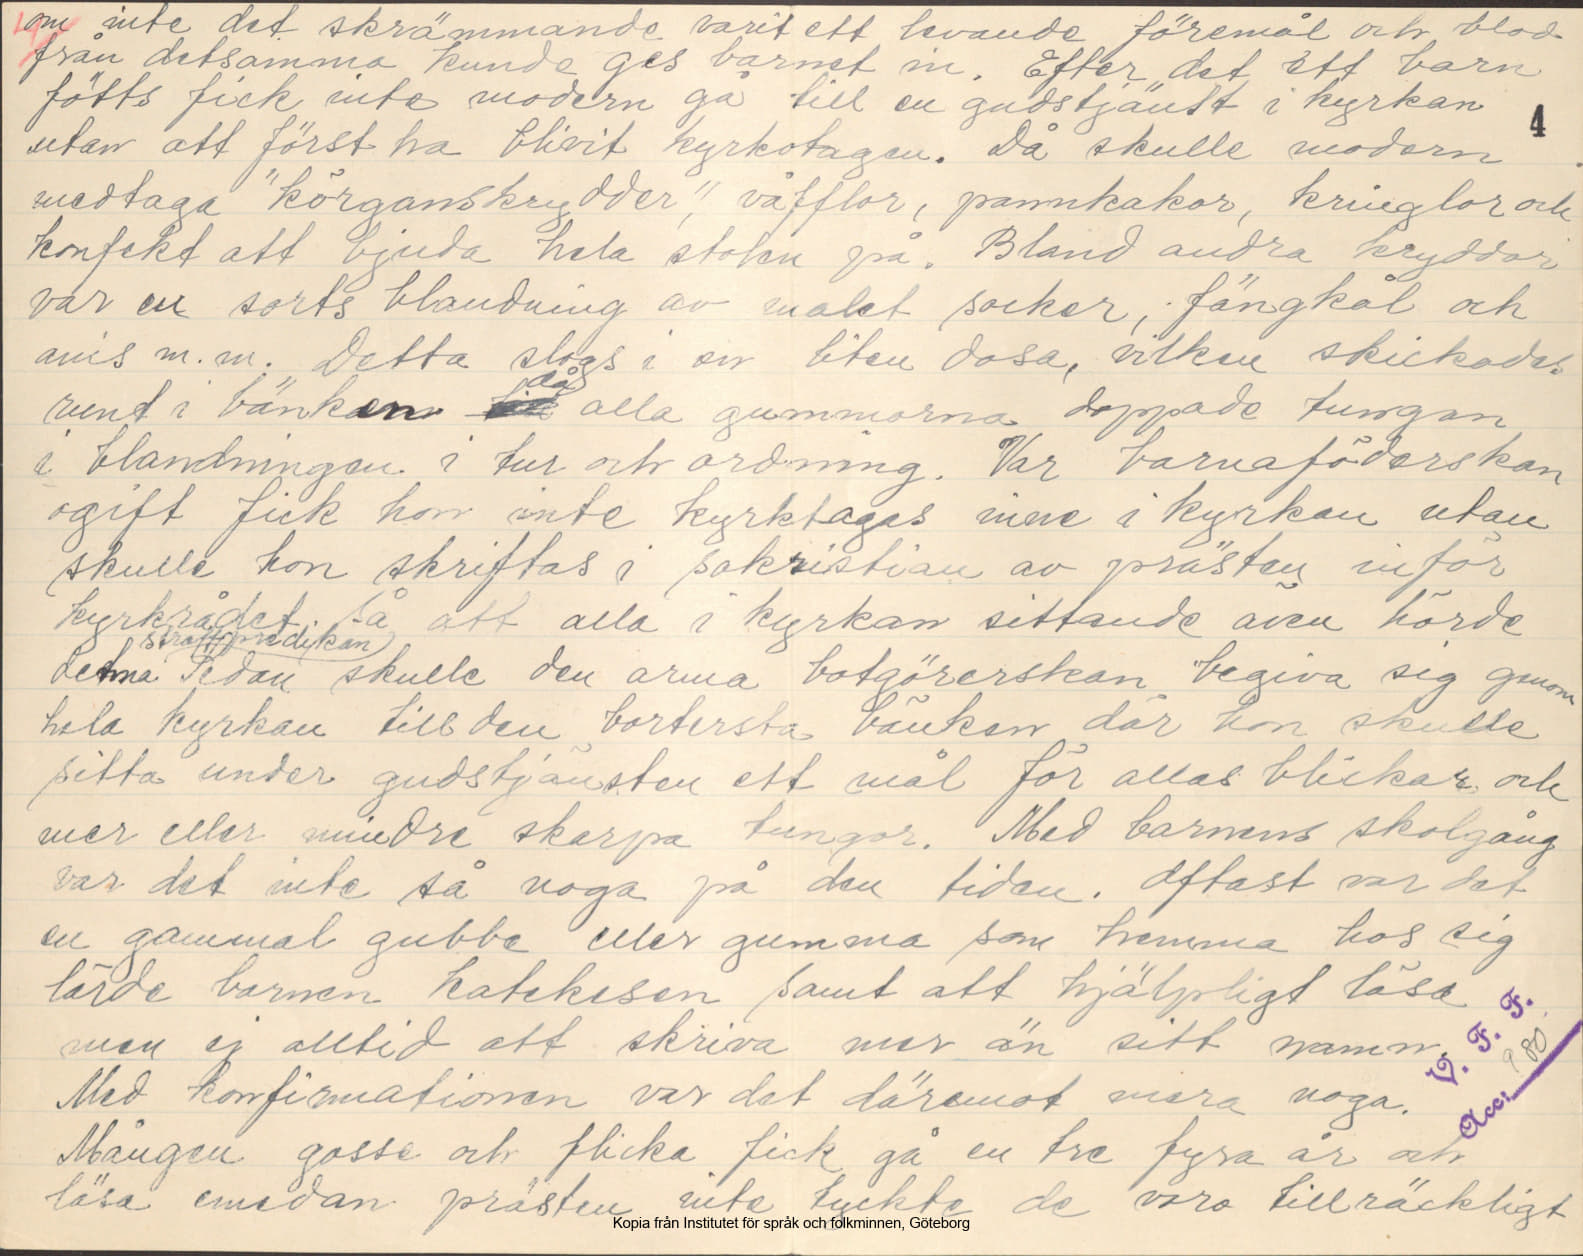 om inte det skrämmande varit ett levande föremål och blod
från detsamma kunde ges barnet in. Efter det ett barn
fötts fick inte modern gå till en gudstjänst i kyrkan
4
utan att först ha blivit kyrkotagen. Då skulle modern
medtaga "körganskrydder", våfflor, pannkakor, kringlor och
konfekt att bjuda hela stolen på. Bland andra kryddor
var en sorts blandning av malet socker, fängkål och
anis m.m. Detta slogs i en liten dosa, vilken skickades
då
runt i bänken alla gummorna doppade tungan
i blandningen i tur och ordning. Var barnaföderskan
ogift fick hon inte kyrktagas inne i kyrkan utan
skulle hon skriftas i sakristian av prästen inför
kyrkrådet så att alla i kyrkan sittande även hörde
straffpredikan
denna Sedan skulle den arma botgörerskan begiva sig genom
hela kyrkan till den bortersta bänken där hon skulle
sitta under gudstjänsten ett mål för allas blickar och
mer eller mindre skarpa tungor. Med barnens skolgång
var det inte så noga på den tiden. Oftast var det
en gammal gubbe eller gumma som hemma hos sig
lärde barnen katekesen samt att hjälpligt läsa
men ej alltid att skriva mer än sitt namn.
V. F. F.
Acc: 980
Med konfirmationen var det däremot mera noga.
Mången gosse och flicka fick gå en tre fyra år och
läsa emedan prästen inte tyckte de voro tillräckligt
Kopia från Institutet för språk och folkminnen, Göteborg